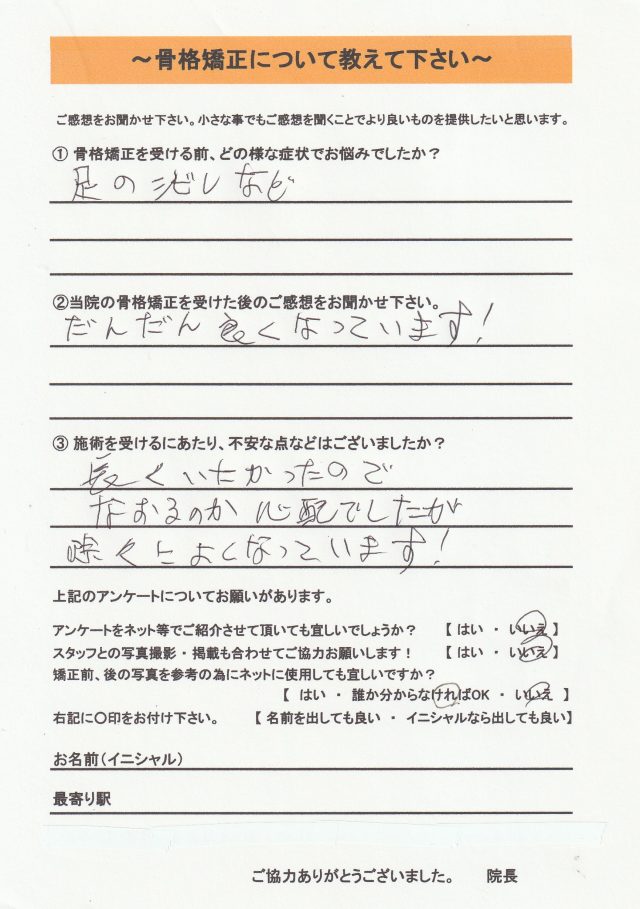 ～骨格矯正について教えて下さい～
ご感想をお聞かせ下さい。小さな事でもご感想を聞くことでより良いものを提供したいと思います。
① 骨格矯正を受ける前、どの様な症状でお悩みでしたか？
足の
など
②当院の骨格矯正を受けた後のご感想をお聞かせ下さい。
だんだん良くなっています！
③ 施術を受けるにあたり、不安な点などはございましたか？
くいたかったので
なおるのか心配でしたが
々によくなっています！
上記のアンケートについてお願いがあります。
アンケートをネット等でご紹介させて頂いても宜しいでしょうか？ 【 はい ・ いいえ 】
スタッフとの写真撮影・掲載も合わせてご協力お願いします！ 【 はい ・ いいえ 】
矯正前、後の写真を参考の為にネットに使用しても宜しいですか？
【 はい ・ 誰か分からなければOK ・ いいえ 】
右記に〇印をお付け下さい。 【 名前を出しても良い ・ イニシャルなら出しても良い】
お名前（イニシャル）
最寄り駅
ご協力ありがとうございました。 院長